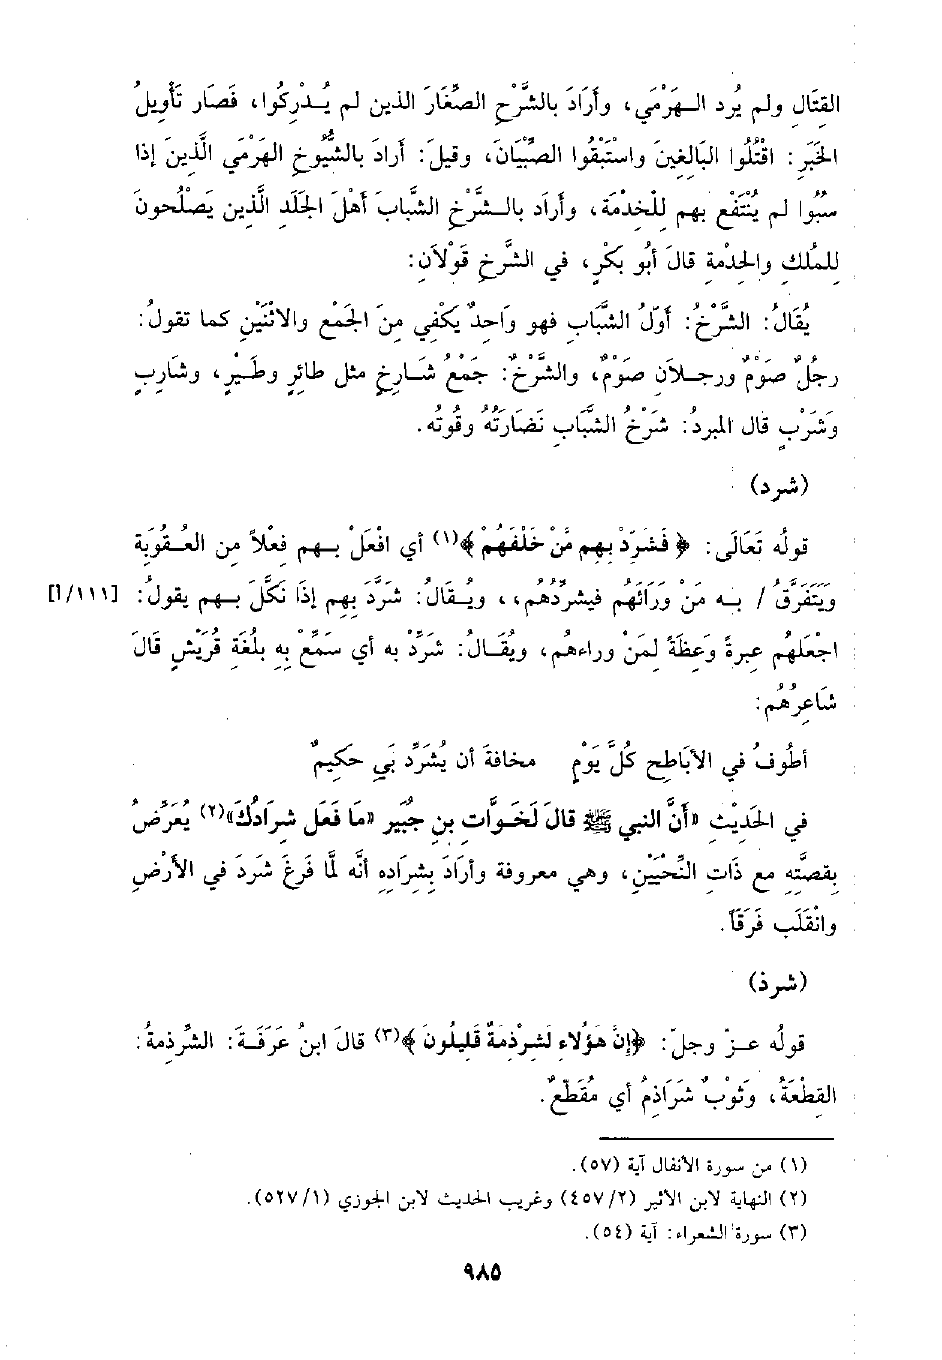 القتَالِ ولم يُرد الهَرْمَي، وأرَادَ بالشَّرْخِ الصِّغَارَ الذين لم يُدْرِكُوا، فَصَار تَأْوِيلُ
الخَبَرِ: اقْتُلُوا البَالِغِينَ واسْتَبْقُوا الصِّبْيَانَ، وقيلَ: أرادَ بالشُّيُوخِ الهَرْمَي الَّذِينَ إذا
سُبُوا لم يُنْتَفَعْ بهم لِلْخِدْمَة، وأرَاد بالشَّرْخِ الشَّبابَ أهْلَ الجَلَد الَّذين يَصْلُحونَ
للمُلك والخِدْمةِ قالَ أبُو بَكْرٍ، في الشَّرخِ قَوْلاَنِ:
يُقَالُ: الشَّرْخُ: أوّلُ الشَّبَابِ فهو وَاحِدٌ يَكْفِي مِنَ الجَمْع والاثْنَيْنِ كما تقولُ:
رجُلٌ صَوْمٌ ورجلاَن صَوْمٌ، والشَّرْخُ: جَمْعُ شَارِخٍ مثل طائِرٍ وطَيْرٍ، وشَارِبٍ
وَشَرْبٍ قال المبردُ: شَرْخُ الشَّبابِ نَضَارَتُهُ وقُوتُه.
(شرد)
قولُه تَعَالَى: ﴿فَشَرِّدْ بِهِم مَّنْ خَلْفَهُمْ﴾(١) أي افْعَلْ بهم فِعْلاً من العُقوبَة
وَيَتَفَرَّقُ / به مَنْ وَرَائَهُم فيشرِّدُهُم،، ويُقالُ: شَرَّدَ بِهِم إذَا نَكَّلَ بهم يقولُ: [١١١/أ]
اجْعَلهُم عِبرةً وَعِظَةً لِمَنْ وراءهُم، ويُقالُ: شَرِّدْ به أي سَمِّعْ بِهِ بلُغَةِ قُرَيْشٍ قَالَ
شَاعِرُهُم:
أطُوفُ في الأبَاطِحِ كُلَّ يَوْمٍ   مخافَةَ أن يُشَرِّدَ بَي حَكيمٌ
في الحَدِيْثِ «أنَّ النبي ﷺ قالَ لَخَوَّات بنِ جُبَيرِ «مَا فَعَل شرادُكَ»(٢) يُعَرِّضُ
بِقِصَّتِهِ مع ذَاتِ النِّحْيَيْنِ، وهي معروفة وأرَادَ بِشِرَادِهِ أنَّه لَمَّا فَرِغَ شَرَدَ في الأرْضِ
وانْقَلَب فَرَقاً.
(شرذ)
قولُه عزْ وجلّ: ﴿إِنَّ هَؤُلاَءِ لَشِرْذِمَةٌ قَلِيلُونَ﴾(٣) قالَ ابنُ عَرَفَةَ: الشِّرْذِمةُ:
القِطْعَةُ، وَثَوْبٌ شَرَاذِمُ أي مُقَطَّعٌ.
(١) من سورة الأنفال آية (٥٧).
(٢) النهاية لابن الأثير (٤٥٧/٢) وغريب الحديث لابن الجوزي (٥٢٧/١).
(٣) سورة الشعراء: آية (٥٤).
٩٨٥